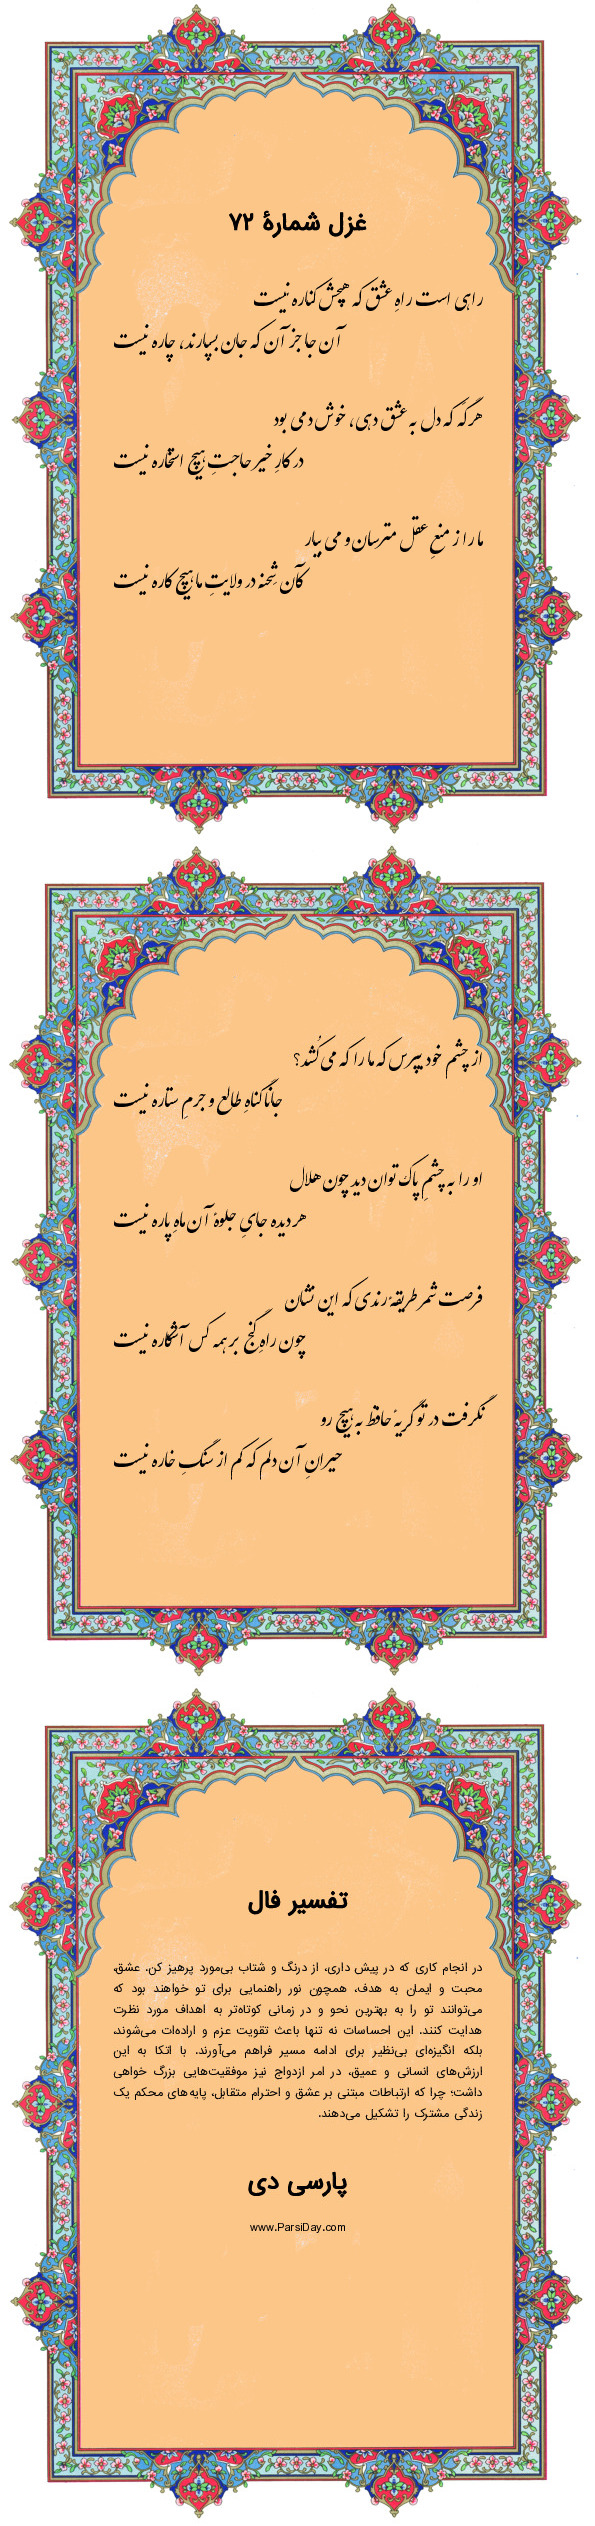 غزل شمارهٔ ۷۲
راهی است راهِ عشق که هیچش کناره نیست
آن جا جز آن که جان بسپارند، چاره نیست
هرگَه که دل به عشق دهی، خوش دمی بود
در کارِ خیر حاجتِ هیچ استخاره نیست
ما را ز منعِ عقل مترسان و می بیار
کآن شِحنه در ولایتِ ما هیچ کاره نیست
از چشم خود بپرس که ما را که می‌کُشد؟
جانا گناهِ طالع و جرمِ ستاره نیست
او را به چشمِ پاک توان دید چون هلال
هر دیده جایِ جلوهٔ آن ماهِ پاره نیست
فرصت شمر طریقهٔ رندی که این نشان
چون راهِ گنج بر همه کس آشکاره نیست
نگرفت در تو گریهٔ حافظ به هیچ رو
حیرانِ آن دلم که کم از سنگِ خاره نیست
تفسیر فال
در انجام کاری که در پیش داری، از درنگ و شتاب بی‌مورد پرهیز کن. عشق،
محبت و ایمان به هدف، همچون نور راهنمایی برای تو خواهند بود که
می‌توانند تو را به بهترین نحو و در زمانی کوتاه‌تر به اهداف مورد نظرت
هدایت کنند. این احساسات نه تنها باعث تقویت عزم و اراده‌ات می‌شوند،
بلکه انگیزه‌ای بی‌نظیر برای ادامه مسیر فراهم می‌آورند. با اتکا به این
ارزش‌های انسانی و عمیق، در امر ازدواج نیز موفقیت‌هایی بزرگ خواهی
داشت؛ چرا که ارتباطات مبتنی بر عشق و احترام متقابل، پایه‌های محکم یک
زندگی مشترک را تشکیل می‌دهند.
پارسی دی
www.ParsiDay.com